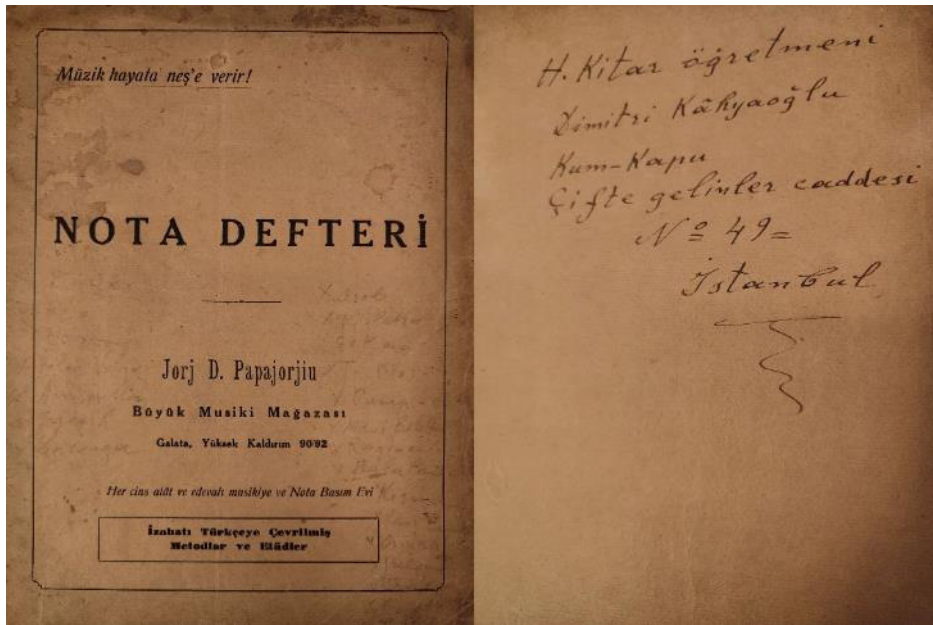 Müzik hayata neş'e verir!
NOTA DEFTERİ
Jorj D. Papajorjiu
Büyük Musiki Mağazası
Galata, Yüksek Kaldırım 90/92
Her cins alât ve edevatı musikiye ve Nota Basım Evi
İzahatı Türkçeye Çevrilmiş
Metodlar ve Etüdler
H. Kitar öğretmeni
Dimitri Kâhyaoğlu
Kum-Kapu
Çifte gelinler caddesi
Nº 49=
İstanbul